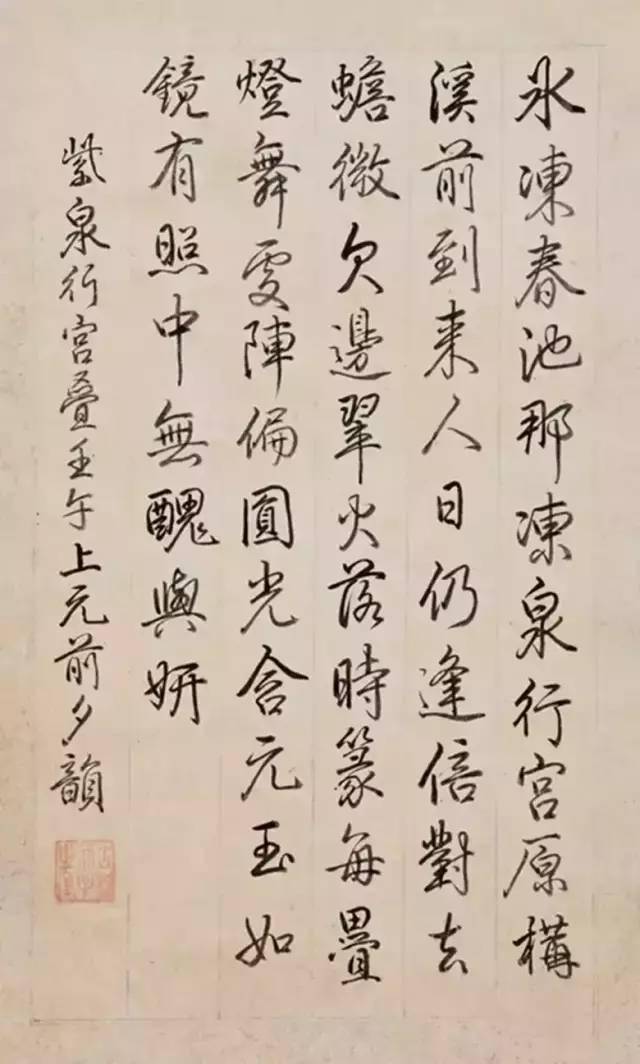 冰凍春池那凍泉行宮原構
溪前到来人日仍逢倍對去
蟾微欠邊翠火落時篆每疊
燈舞處陣偏圓光含元玉如
鏡有照中無醜與妍
紫泉行宮叠壬午上元前夕韻